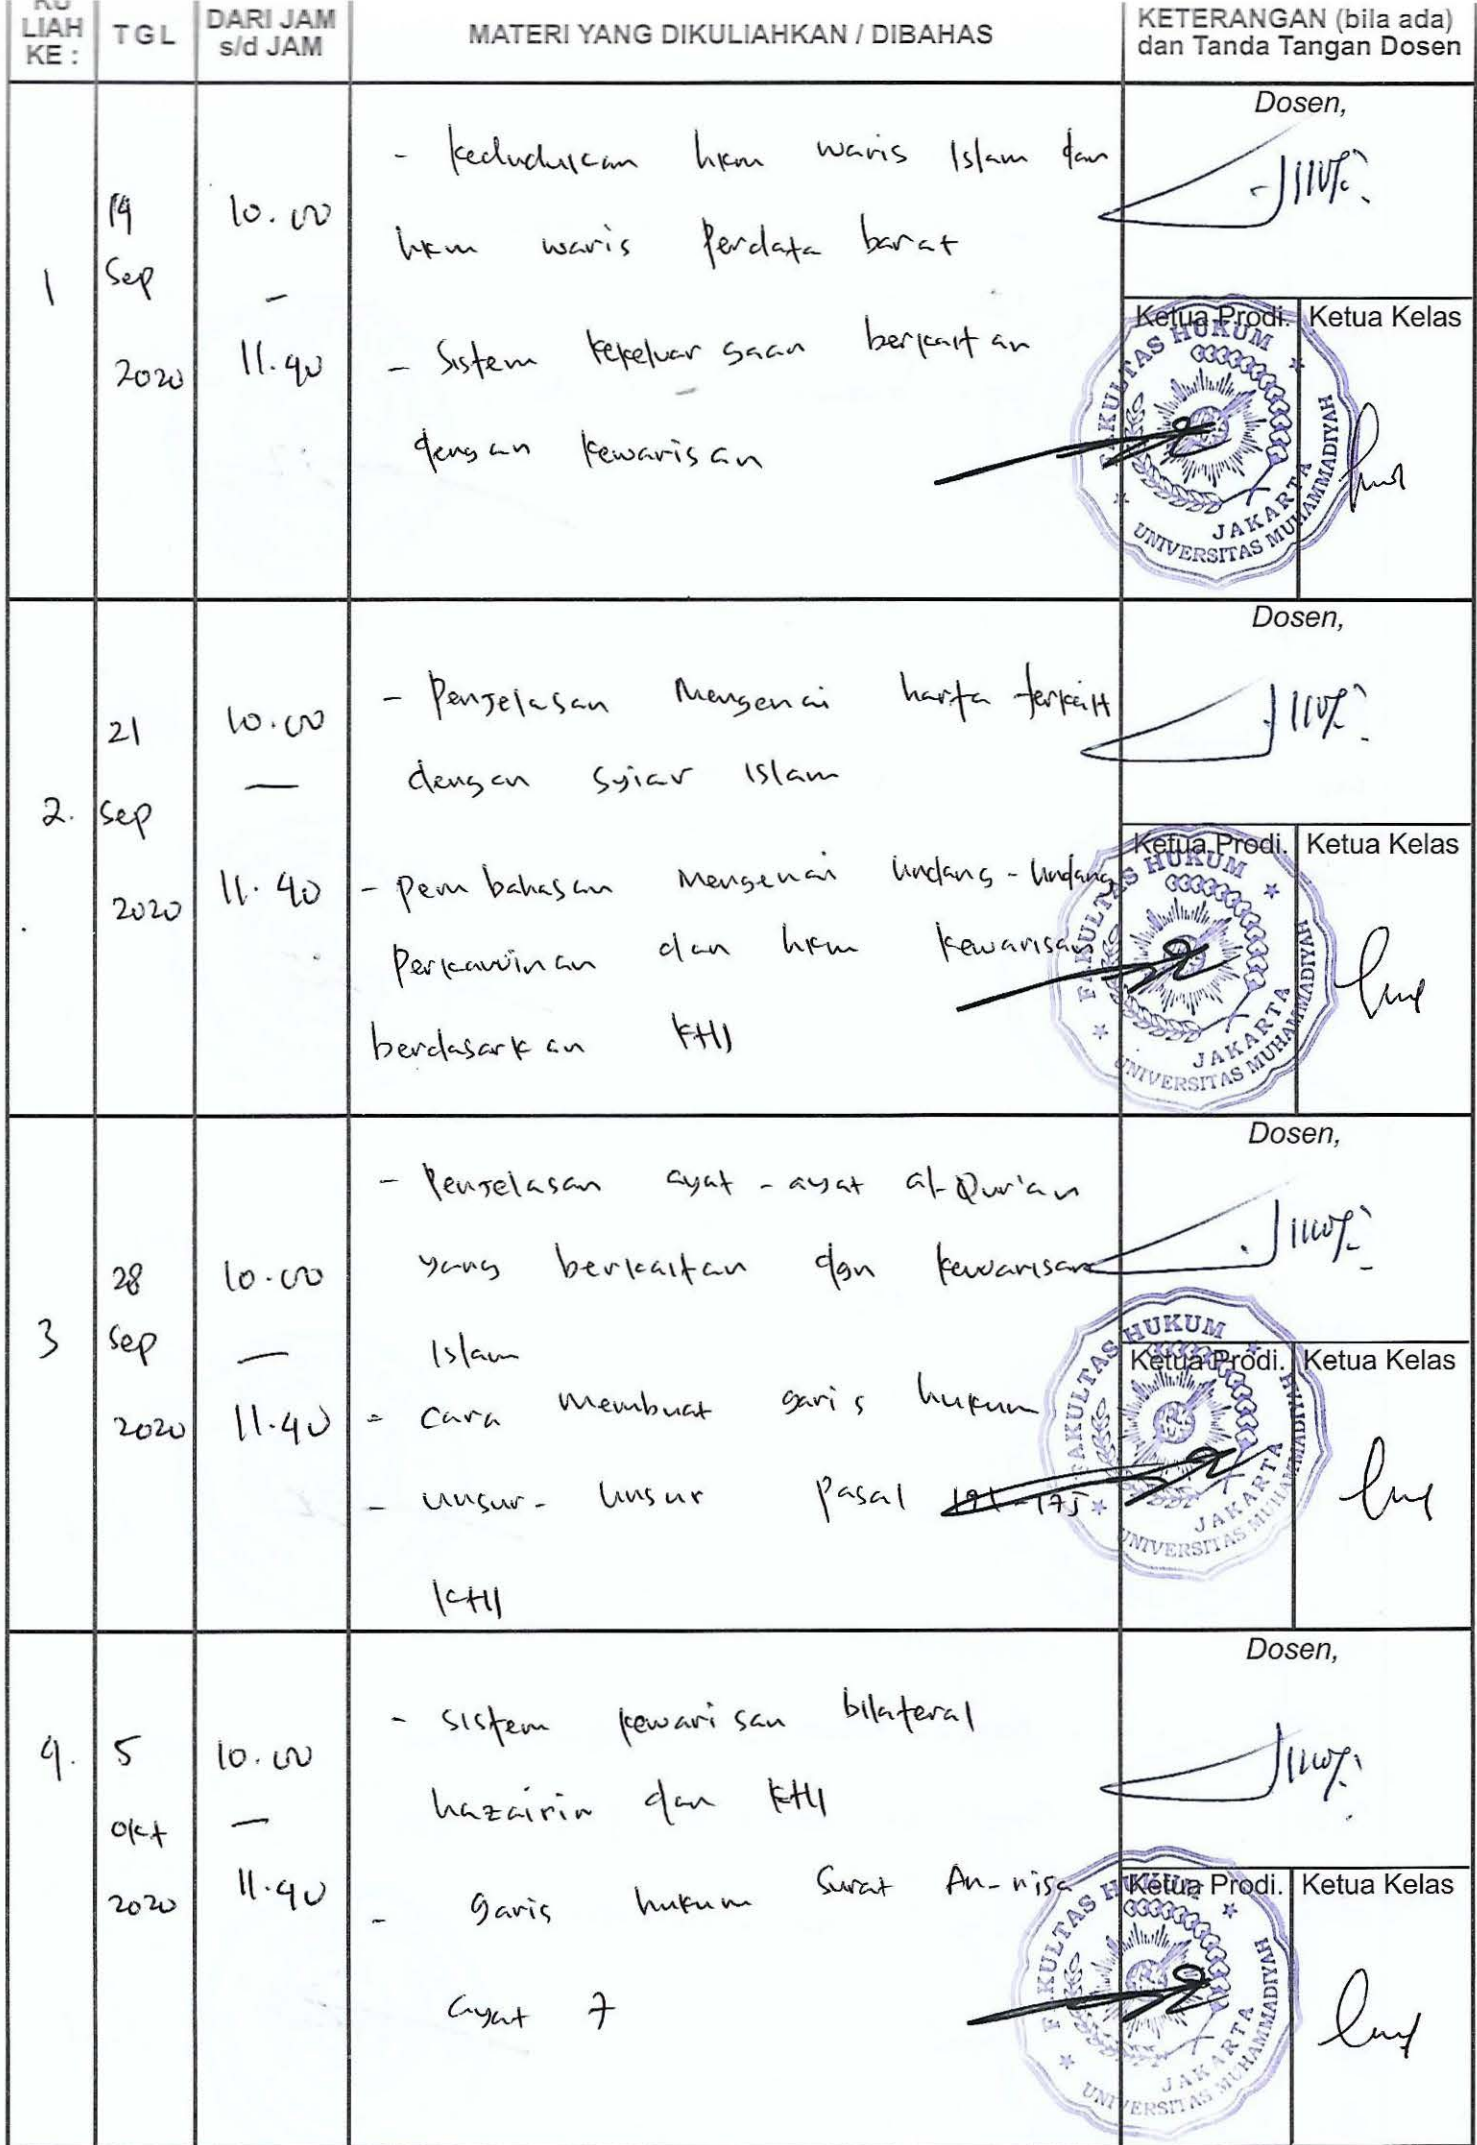 KU
LIAH
KE :
TGL
DARI JAM
s/d JAM
MATERI YANG DIKULIAHKAN / DIBAHAS
KETERANGAN (bila ada)
dan Tanda Tangan Dosen
1
14
Sep
2020
10.00
-
11.40
- Kedudukan hkm waris Islam dan
hkm waris Perdata barat
- Sistem kekeluargaan berkaitan
dengan kewarisan
Dosen,
Ketua Prodi.
Ketua Kelas
FAKULTAS HUKUM
UNIVERSITAS MUHAMMADIYAH
JAKARTA
2.
21
Sep
2020
10.00
-
11.40
- Penjelasan Mengenai harta terkait
dengan Syiar Islam
- Pembahasan Mengenai Undang-Undang
Perkawinan dan hkm kewarisan
berdasarkan KHI
Dosen,
Ketua Prodi.
Ketua Kelas
FAKULTAS HUKUM
UNIVERSITAS MUHAMMADIYAH
JAKARTA
3
28
Sep
2020
10.00
-
11.40
- Penjelasan ayat-ayat al-Qur'an
yang berkaitan dgn kewarisan
Islam
- Cara Membuat garis hukum
- Unsur-Unsur Pasal
KHI
Dosen,
Ketua Prodi.
Ketua Kelas
FAKULTAS HUKUM
UNIVERSITAS MUHAMMADIYAH
JAKARTA
4.
5
Okt
2020
10.00
-
11.40
- Sistem kewarisan bilateral
hazairin dan KHI
- garis hukum Surat An-nisa
ayat 7
Dosen,
Ketua Prodi.
Ketua Kelas
FAKULTAS HUKUM
UNIVERSITAS MUHAMMADIYAH
JAKARTA